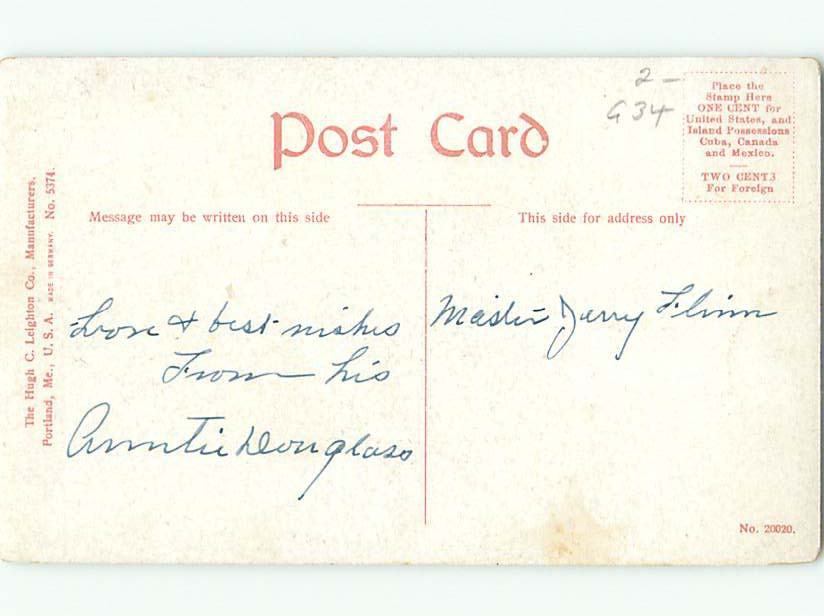 2-
G34
Place the
Stamp Here
ONE CENT for
United States, and
Island Possessions
Cuba, Canada
and Mexico.
TWO CENTS
For Foreign
Post Card
Message may be written on this side
This side for address only
Love & best wishes
From his
Auntie Douglass
Master Jerry Flinn
The Hugh C. Leighton Co., Manufacturers,
Portland, Me., U. S. A. MADE IN GERMANY. No. 5374.
No. 20020.